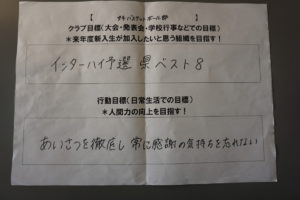 【 女子バスケットボール部 】
クラブ目標(大会・発表会・学校行事などでの目標)
*来年度新入生が加入したいと思う組織を目指す!
インターハイ予選 県ベスト8
行動目標(日常生活での目標)
*人間力の向上を目指す!
あいさつを徹底し 常に感謝の気持ちを忘れない